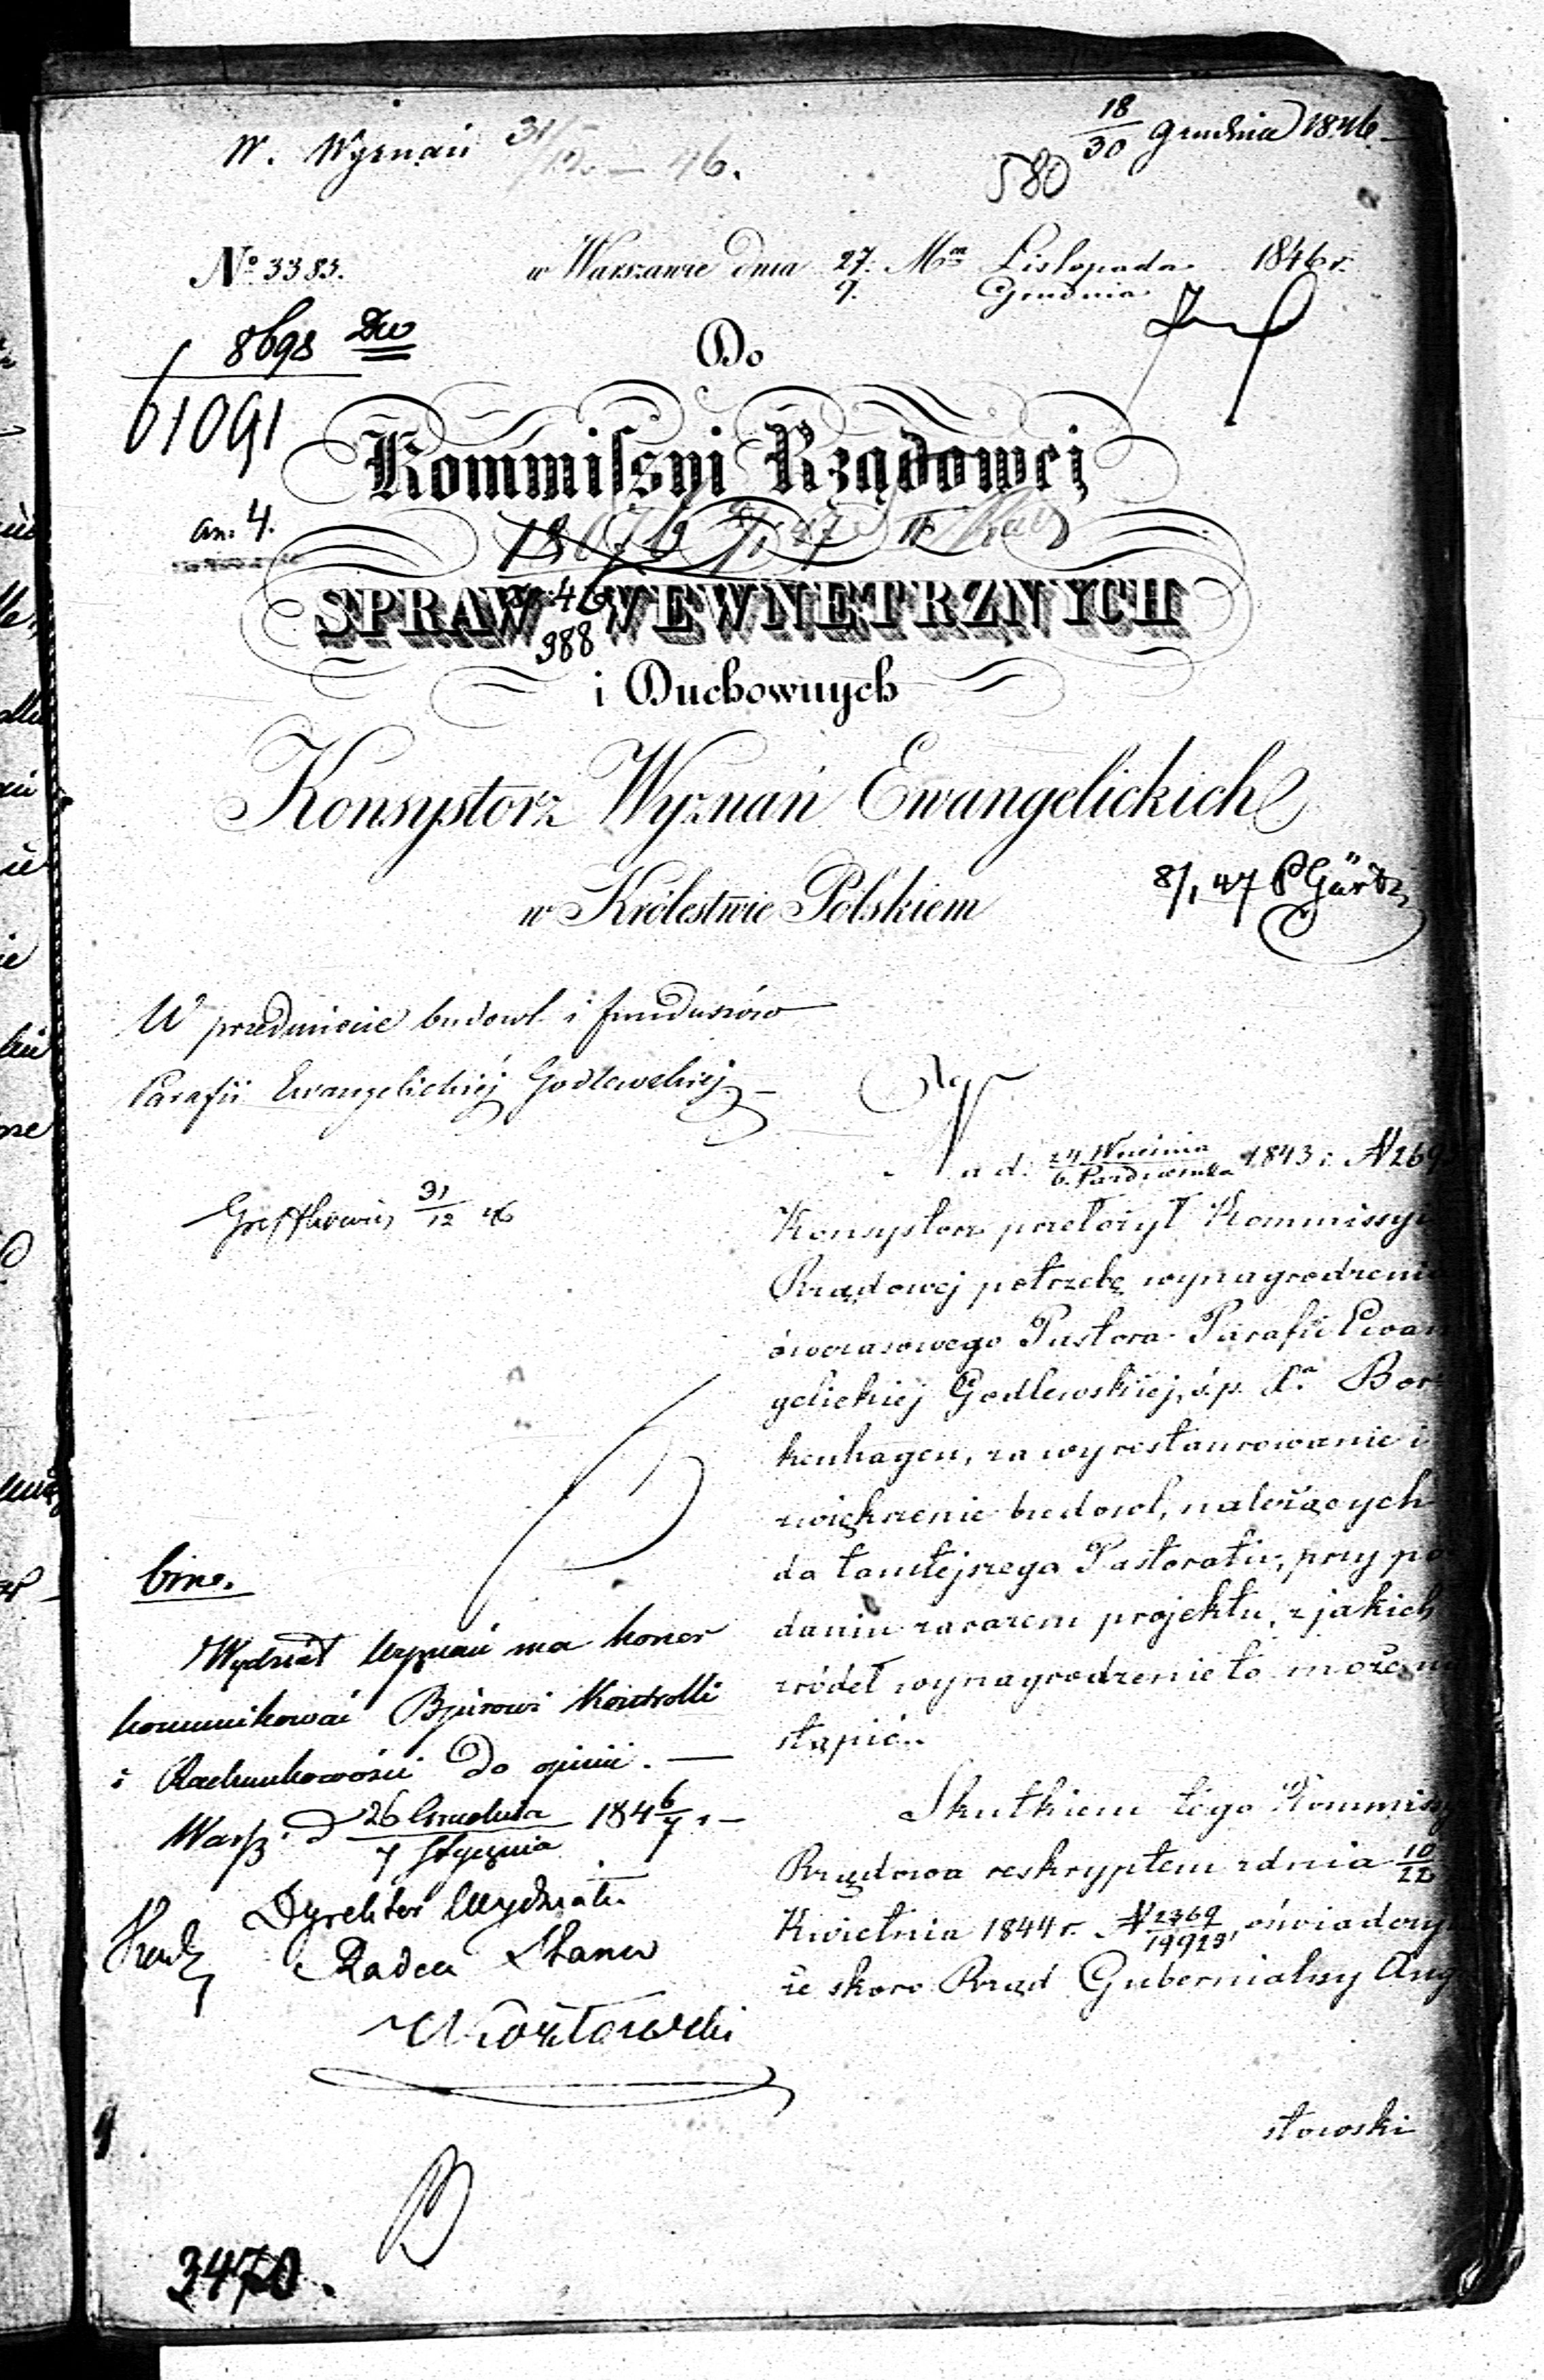 W. Wyznań 31/12 – 46.
18/30 Grudnia 1846.
580
No 3383.
w Warszawie dnia 27./9. Mca Listopada/Grudnia 1846 r.
8698
61091
Do
Kommissyi Rządowej
an. 4.
SPRAW WEWNETRZNYCH
46
988
i Duchownych
Konsystorz Wyznań Ewangelickich
w Królestwie Polskiem
8/1 47
W przedmiocie budowl i funduszów
Parafii Ewangelickiéj Godlewskiéj. –
31/12 46
d. 24 Września/6. Pazdziernika 1843 r. N 269
Konsystorz przełożył Kommissyi
Rządowej potrzebę wynagrodzenia
ówczasowego Pastora Parafii Ewan
gelickiej Godlewskiej, ś.p. Xa Bor
kenhagen, za wyrestaurowanie i
zwiększenie budowl, należących
do tamtejszego Pastoratu, przy po
daniu zarazem projektu, z jakich
zródeł wynagrodzenie to może na
stąpić.
Skutkiem tego Kommissy
Rządowa reskryptem z dnia 10/22
Kwietnia 1844 r. N 2369/19923, oświadczy
że skoro Rząd Gubernialny Aug
stowski
br. m.
Wydział Wyznań ma honor
kommunikować Bjurowi Kontrolli
i Rachunkowości do opinii. —
Warsz. d 26 Grudnia/7 Stycznia 1846/7 r –
Dyrektor Wydziału
Radca Stanu
Kozłowski
3470.